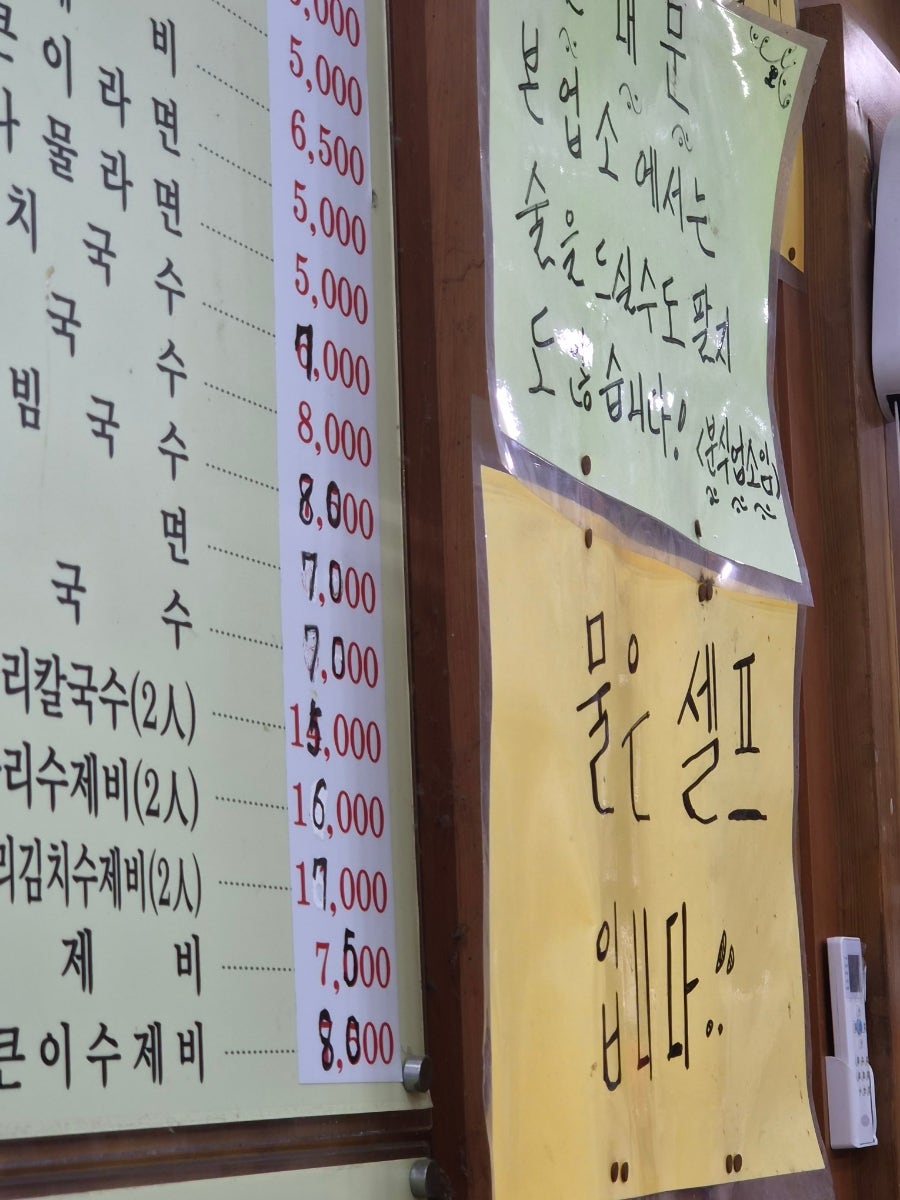 비
이 라 면
물 라 면
치 국 수
국 수
국 수
빔 면
국 수
리칼국수(2人)
리수제비(2人)
리김치수제비(2人)
제 비
큰이수제비
5,000
6,500
5,000
5,000
7,000
8,000
8,000
7,000
7,000
15,000
16,000
17,000
7,500
8,000
본 업소에서는
술을 드실수도 팔지
도 않습니다!
(분식업소임)
물은 셀프
입니다!!